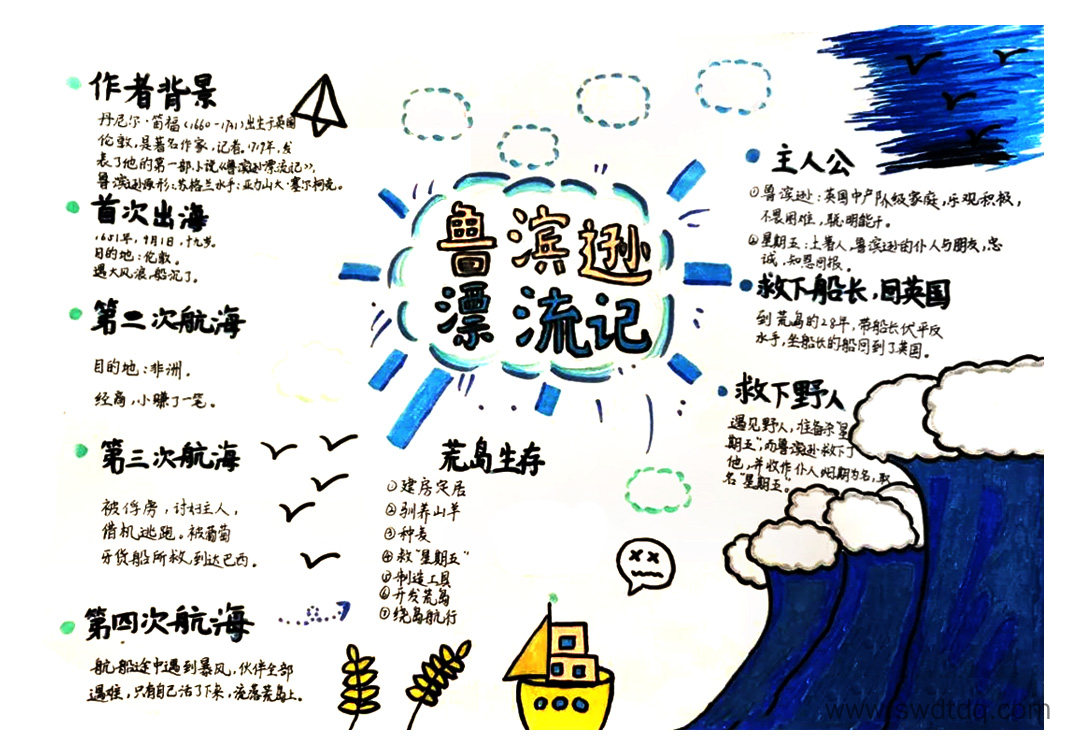 鲁滨逊
漂流记
作者背景
丹尼尔·笛福(1660-1731)出生于英国
伦敦,是著名作家,记者。1719年,发
表了他的第一部小说《鲁滨逊漂流记》,
鲁滨逊原形:苏格兰水手:亚力山大·塞尔柯克。
首次出海
1651年,9月1日,十九岁。
目的地:伦敦。
遇大风浪,船沉了。
第二次航海
目的地:非洲。
经商,小赚了一笔。
第三次航海
被俘房,讨好主人,
借机逃跑。被葡萄
牙货船所救,到达巴西。
第四次航海
航船途中遇到暴风,伙伴全部
遇难,只有自己活了下来,流落荒岛上。
荒岛生存
①建房定居
②驯养山羊
③种麦
④救"星期五"
⑤制造工具
⑥开发荒岛
⑦绕岛航行
主人公
①鲁滨逊:英国中产阶级家庭,乐观积极,
不畏困难,聪明能干。
②星期五:土著人,鲁滨逊的仆人与朋友,忠
诚,知恩回报。
救下船长,回英国
到荒岛的28年,帮船长伏平反
水手,坐船长的船回到了英国。
救下野人
遇见野人,往备杀"星
期五",而鲁滨逊救下了
他,并收作仆人,日期为名,取
名"星期五"。
www.swdtdq.com